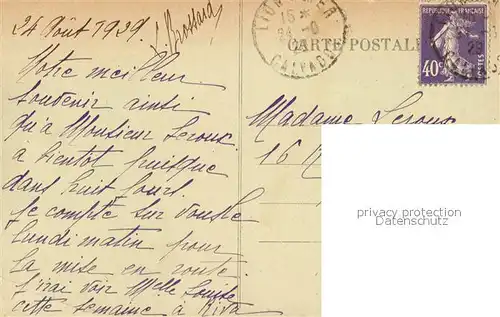 24 Août 1929.
L. Brossard
LION S/MER
15 *
24 -8
CALVADOS
CARTE POSTALE
REPUBLIQUE FRANCAISE
40c
POSTES
Votre meilleur
souvenir ainsi
qu'à Monsieur Leroux
à bientôt puisque
dans huit jours.
Je compte sur vous le
lundi matin pour
la mise en route.
J'irai voir Melle Louise
cette semaine à Riva
Madame Leroux
16 R
privacy protection
Datenschutz